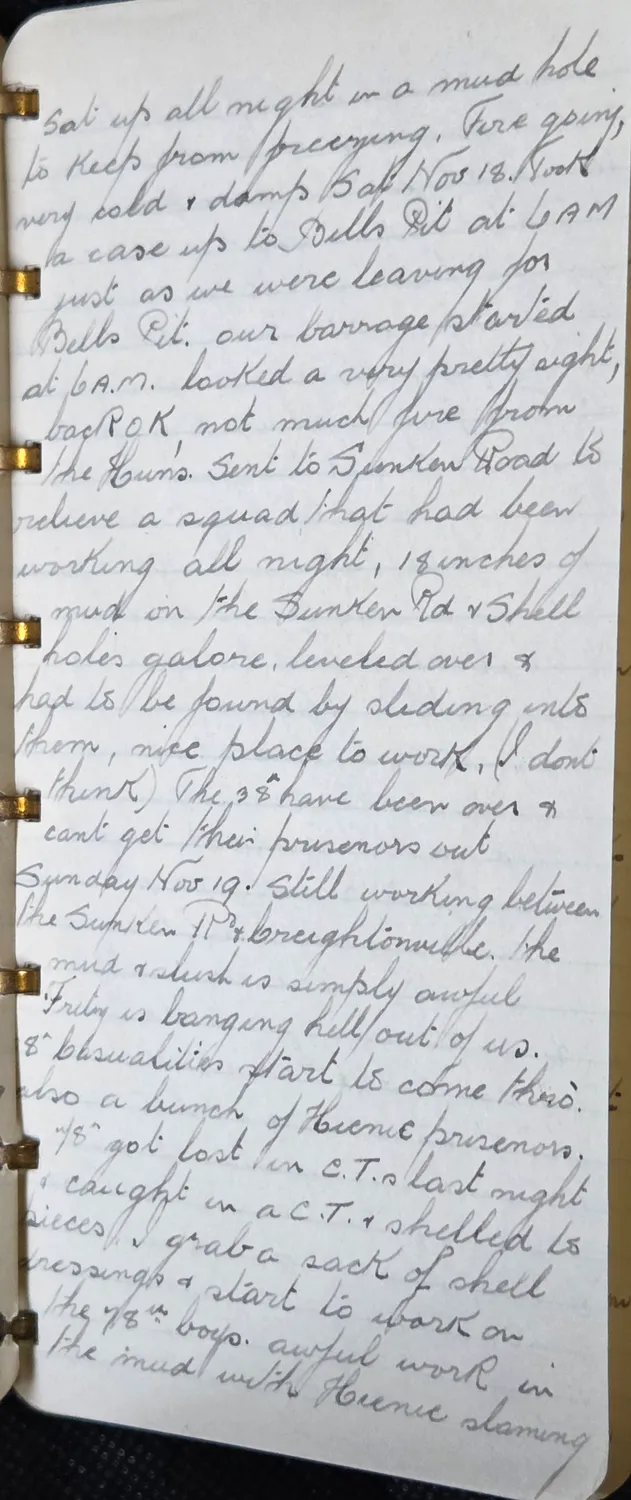 Sat up all night in a mud hole
to keep from freezing. Fire going,
very cold & damp Sat Nov 18. Took
a case up to Bells Pit at 6 AM
just as we were leaving for
Bells Pit. our barrage started
at 6 A.M. looked a very pretty sight,
back OK, not much fire from
the Huns. Sent to Sunken Road to
relieve a squad that had been
working all night, 18 inches of
mud on the Sunken Rd & Shell
holes galore, leveled over &
had to be found by sliding into
them, nice place to work, (I dont
think) The 38th have been over &
cant get their prisenors out
Sunday Nov 19. Still working between
the Sunken Rd & Creightonville. The
mud & slush is simply awful
Fritz is banging hell out of us.
8th Casualities start to come thro.
also a bunch of Hienie prisenors.
78th got lost in C.T.s last night
& caught in a C.T. & shelled to
pieces, I grab a sack of shell
dressings & start to work on
the 78th boys. awful work in
the mud with Hienie slaming